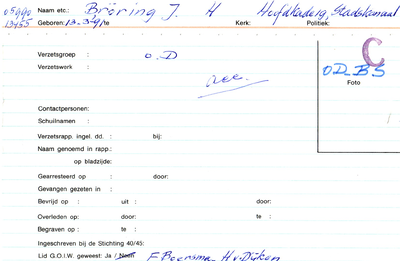 05990 Naam etc.: Bröring J. H Hoofdkaderg, Stadskanaal
13455 Geboren: 13.3.91/te Kerk: Politiek:
C
Verzetsgroep : O.D
Verzetswerk :
OD-BS
Foto
Contactpersonen:
Schuilnamen :
Verzetsrapp. ingel. dd. : bij:
Naam genoemd in rapp.:
op bladzijde:
Gearresteerd op : door:
Gevangen gezeten in :
Bevrijd op : uit : door:
Overleden op : door: te :
Begraven op : te :
Ingeschreven bij de Stichting 40/45:
Lid G.O.I.W. geweest: Ja / Neen F. Beersma- H.v. Dijken